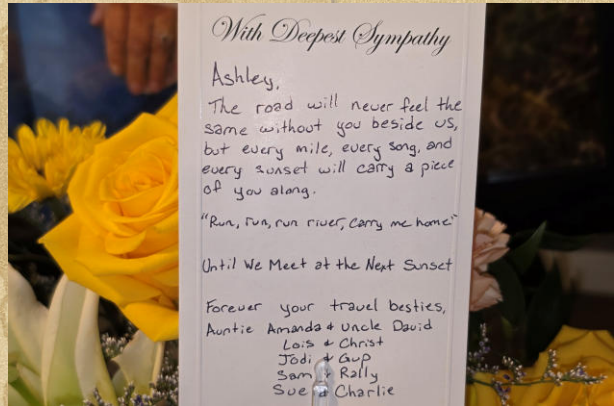 With Deepest Sympathy
Ashley,
The road will never feel the
same without you beside us,
but every mile, every song, and
every sunset will carry a piece
of you along.
"Run, run, run river, carry me home"
Until We Meet at the Next Sunset
Forever your travel besties,
Auntie Amanda & Uncle David
Lois & Christ
Jodi & Gup
Sam & Rally
Sue & Charlie